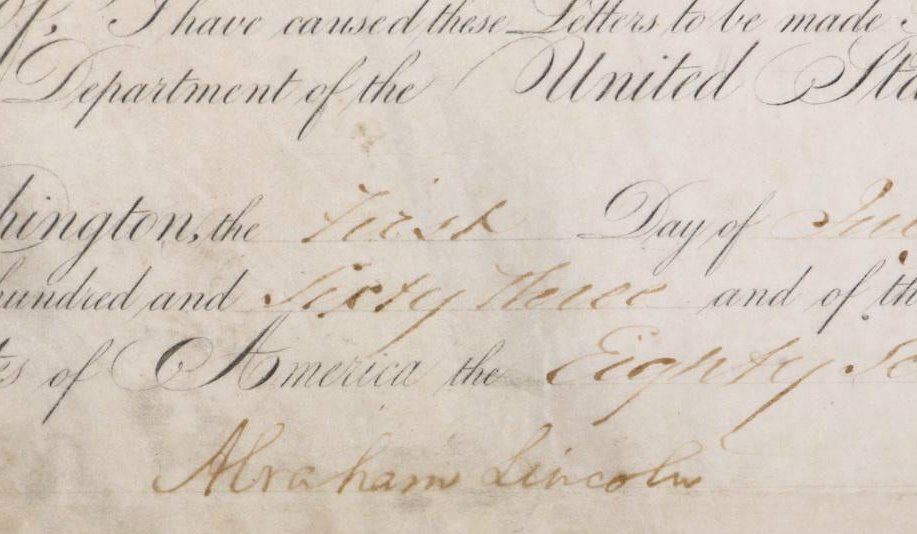 I have caused these Letters to be made
Department of the United Sta
hington, the First Day of Ju
hundred and Sixty Three and of th
s of America the Eighty Se
Abraham Lincoln